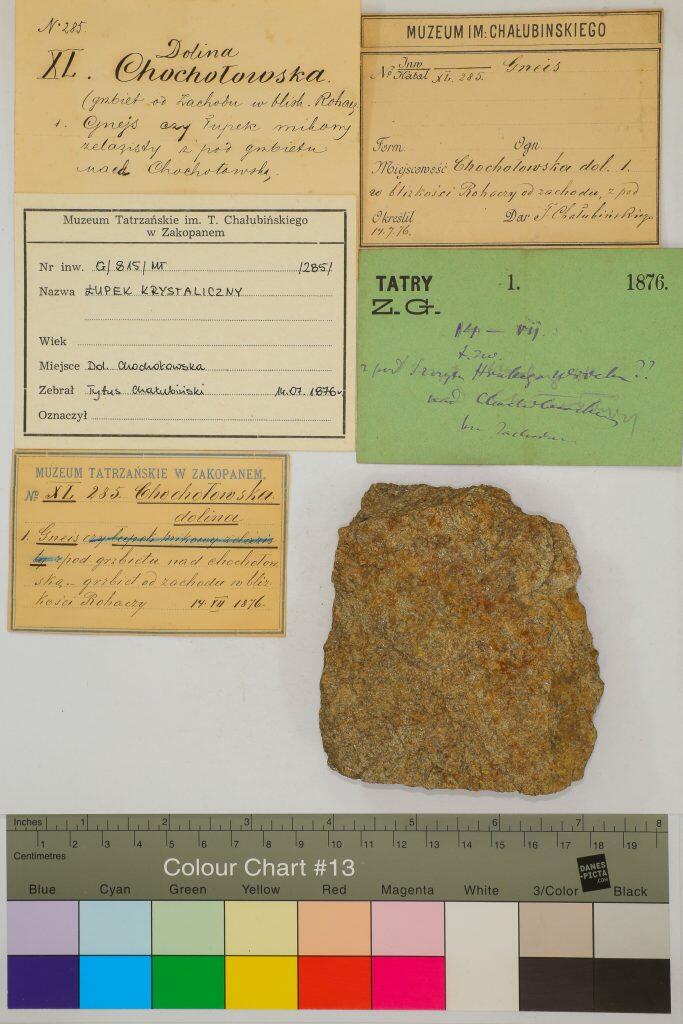 N. 285.
XL. Dolina
Chochołowska.
(grzbiet od Zachodu w blisk. Rohaczy
1. Gnejs czy łupek mikowy
żelazisty z pod grzbietu
nad Chochołowską.
MUZEUM IM: CHAŁUBINSKIEGO
No Inw
Katal XL. 285. Gneis
Form. Ogn.
Miejscowość Chochołowska dol. 1.
w blizkości Rohaczy od zachodu, z pod
Określił Dar T Chałubińskiego
14.7.76.
Muzeum Tatrzańskie im. T. Chałubińskiego
w Zakopanem
Nr inw. G/815/MT /285/
Nazwa ŁUPEK KRYSTALICZNY
Wiek
Miejsce Dol. Chochołowska
Zebrał Tytus Chałubiński 14.07.1876r.
Oznaczył
TATRY 1. 1876.
Z. G.
14 — VII.
z pod ??
nad
MUZEUM TATRZAŃSKIE W ZAKOPANEM.
No XL 285. Chochołowska
dolina
1. Gneis czy łupek mikowy żelazis
ty z pod grzbietu nad chochołow
ską – grzbiet od zachodu w bliz
kości Rohaczy 14 VII 1876.
Inches 1 2 3 4 5 6 7 8
Centimetres 1 2 3 4 5 6 7 8 9 10 11 12 13 14 15 16 17 18 19
Colour Chart #13
DANES
-PICTA
.COM
Blue Cyan Green Yellow Red Magenta White 3/Color Black